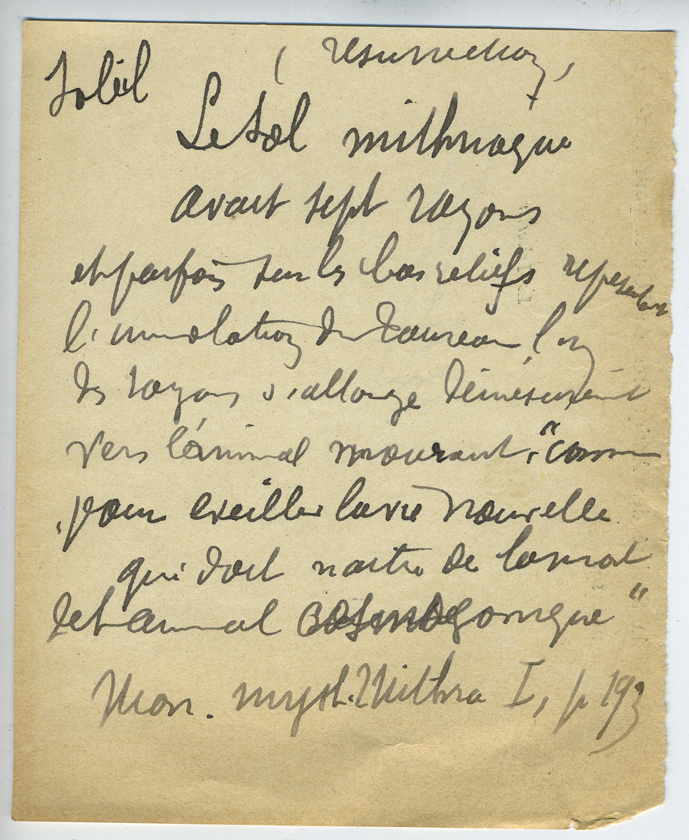 Soleil
( résurrection)
Le Sol mithriaque
avait sept rayons
et parfois sur les bas reliefs représentant
l'immolation du Taureau l'un
des rayons s'allonge démesurément
vers l'animal mourant "comme
pour éveiller la vie nouvelle
qui doit naitre de la mort
de l'animal cosmogonique"
Mon. myst. Mithra I, p 193